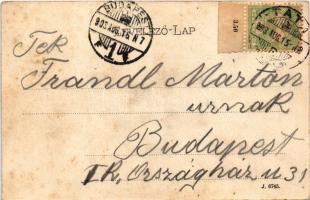 BUDAPEST
903 AUG. 15 N7
LEVELEZŐ-LAP
TATA
903 AUG. 15
3.50
Tek
Frandl Márton
urnak
Budapest
IK. Országház u 31
J. 6765.